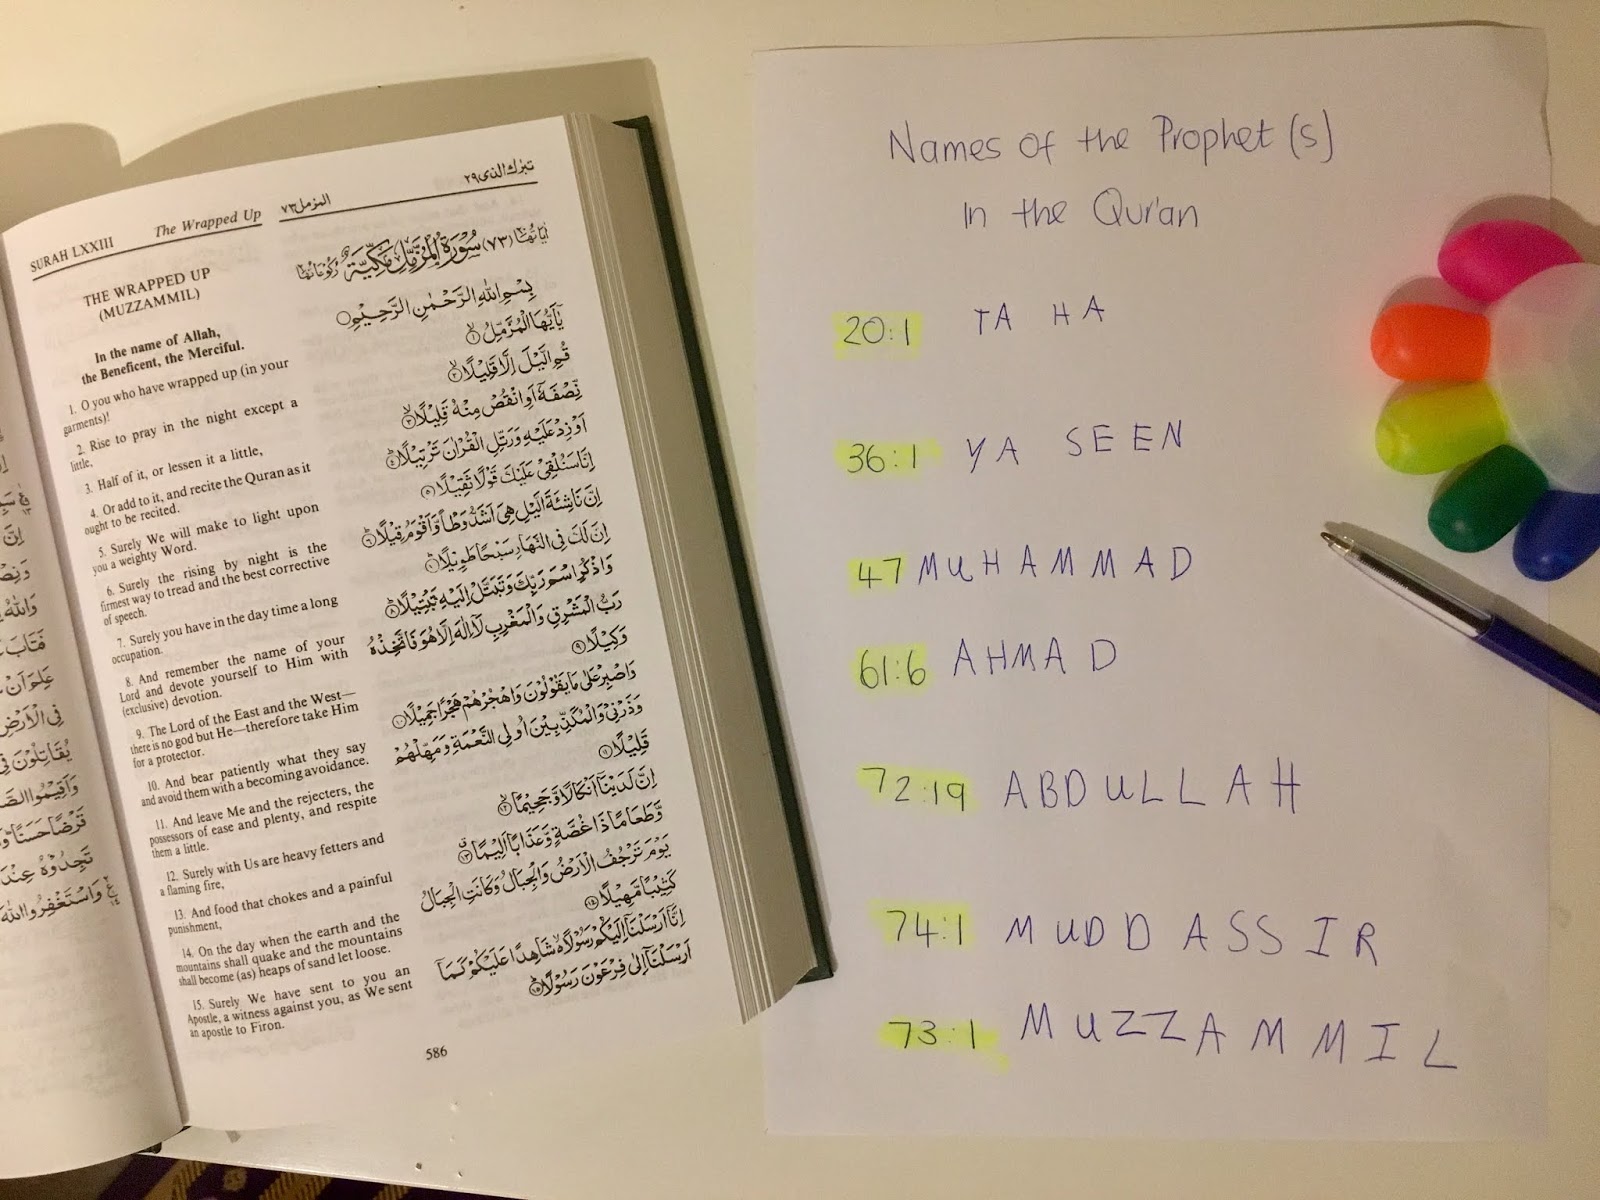 SURAH LXXIII The Wrapped Up المزمل ٧٣ تبرك الذى ٢٩
THE WRAPPED UP
(MUZZAMMIL)
In the name of Allah,
the Beneficent, the Merciful.
1. O you who have wrapped up (in your
garments)!
2. Rise to pray in the night except a
little,
3. Half of it, or lessen it a little,
4. Or add to it, and recite the Quran as it
ought to be recited.
5. Surely We will make to light upon
you a weighty Word.
6. Surely the rising by night is the
firmest way to tread and the best corrective
of speech.
7. Surely you have in the day time a long
occupation.
8. And remember the name of your
Lord and devote yourself to Him with
(exclusive) devotion.
9. The Lord of the East and the West—
there is no god but He—therefore take Him
for a protector.
10. And bear patiently what they say
and avoid them with a becoming avoidance.
11. And leave Me and the rejecters, the
possessors of ease and plenty, and respite
them a little.
12. Surely with Us are heavy fetters and
a flaming fire,
13. And food that chokes and a painful
punishment,
14. On the day when the earth and the
mountains shall quake and the mountains
shall become (as) heaps of sand let loose.
15. Surely We have sent to you an
Apostle, a witness against you, as We sent
an apostle to Firon.
اياتها (٧٣) سُوْرَةُ الْمُزَّمِّلِ مَكِّيَّةٌ ركوعاتها
بِسْمِ اللهِ الرَّحْمٰنِ الرَّحِيْمِ
يٰۤاَيُّهَا الْمُزَّمِّلُ ۙ١
قُمِ الَّيْلَ اِلَّا قَلِيْلًا ۙ٢
نِّصْفَهٗۤ اَوِ انْقُصْ مِنْهُ قَلِيْلًا ۙ٣
اَوْ زِدْ عَلَيْهِ وَرَتِّلِ الْقُرْاٰنَ تَرْتِيْلًا ؕ٤
اِنَّا سَنُلْقِيْ عَلَيْكَ قَوْلًا ثَقِيْلًا ٥
اِنَّ نَاشِئَةَ الَّيْلِ هِيَ اَشَدُّ وَطْاً وَّاَقْوَمُ قِيْلًا ؕ٦
اِنَّ لَكَ فِى النَّهَارِ سَبْحًا طَوِيْلًا ؕ٧
وَاذْكُرِ اسْمَ رَبِّكَ وَتَبَتَّلْ اِلَيْهِ تَبْتِيْلًا ؕ٨
رَبُّ الْمَشْرِقِ وَالْمَغْرِبِ لَاۤ اِلٰهَ اِلَّا هُوَ فَاتَّخِذْهُ
وَكِيْلًا ٩
وَاصْبِرْ عَلٰى مَا يَقُوْلُوْنَ وَاهْجُرْهُمْ هَجْرًا جَمِيْلًا ١٠
وَذَرْنِيْ وَالْمُكَذِّبِيْنَ اُولِى النَّعْمَةِ وَمَهِّلْهُمْ
قَلِيْلًا ١١
اِنَّ لَدَيْنَاۤ اَنْكَالًا وَّجَحِيْمًا ۙ١٢
وَّطَعَامًا ذَا غُصَّةٍ وَّعَذَابًا اَلِيْمًا ١٣
يَوْمَ تَرْجُفُ الْاَرْضُ وَالْجِبَالُ وَكَانَتِ الْجِبَالُ
كَثِيْبًا مَّهِيْلًا ١٤
اِنَّاۤ اَرْسَلْنَاۤ اِلَيْكُمْ رَسُوْلًا ۙ شَاهِدًا عَلَيْكُمْ كَمَاۤ
اَرْسَلْنَاۤ اِلٰى فِرْعَوْنَ رَسُوْلًا ؕ١٥
586
Names of the Prophet (s)
in the Qur'an
20:1 TA HA
36:1 YA SEEN
47 MUHAMMAD
61:6 AHMAD
72:19 ABDULLAH
74:1 MUDDASSIR
73:1 MUZZAMMIL